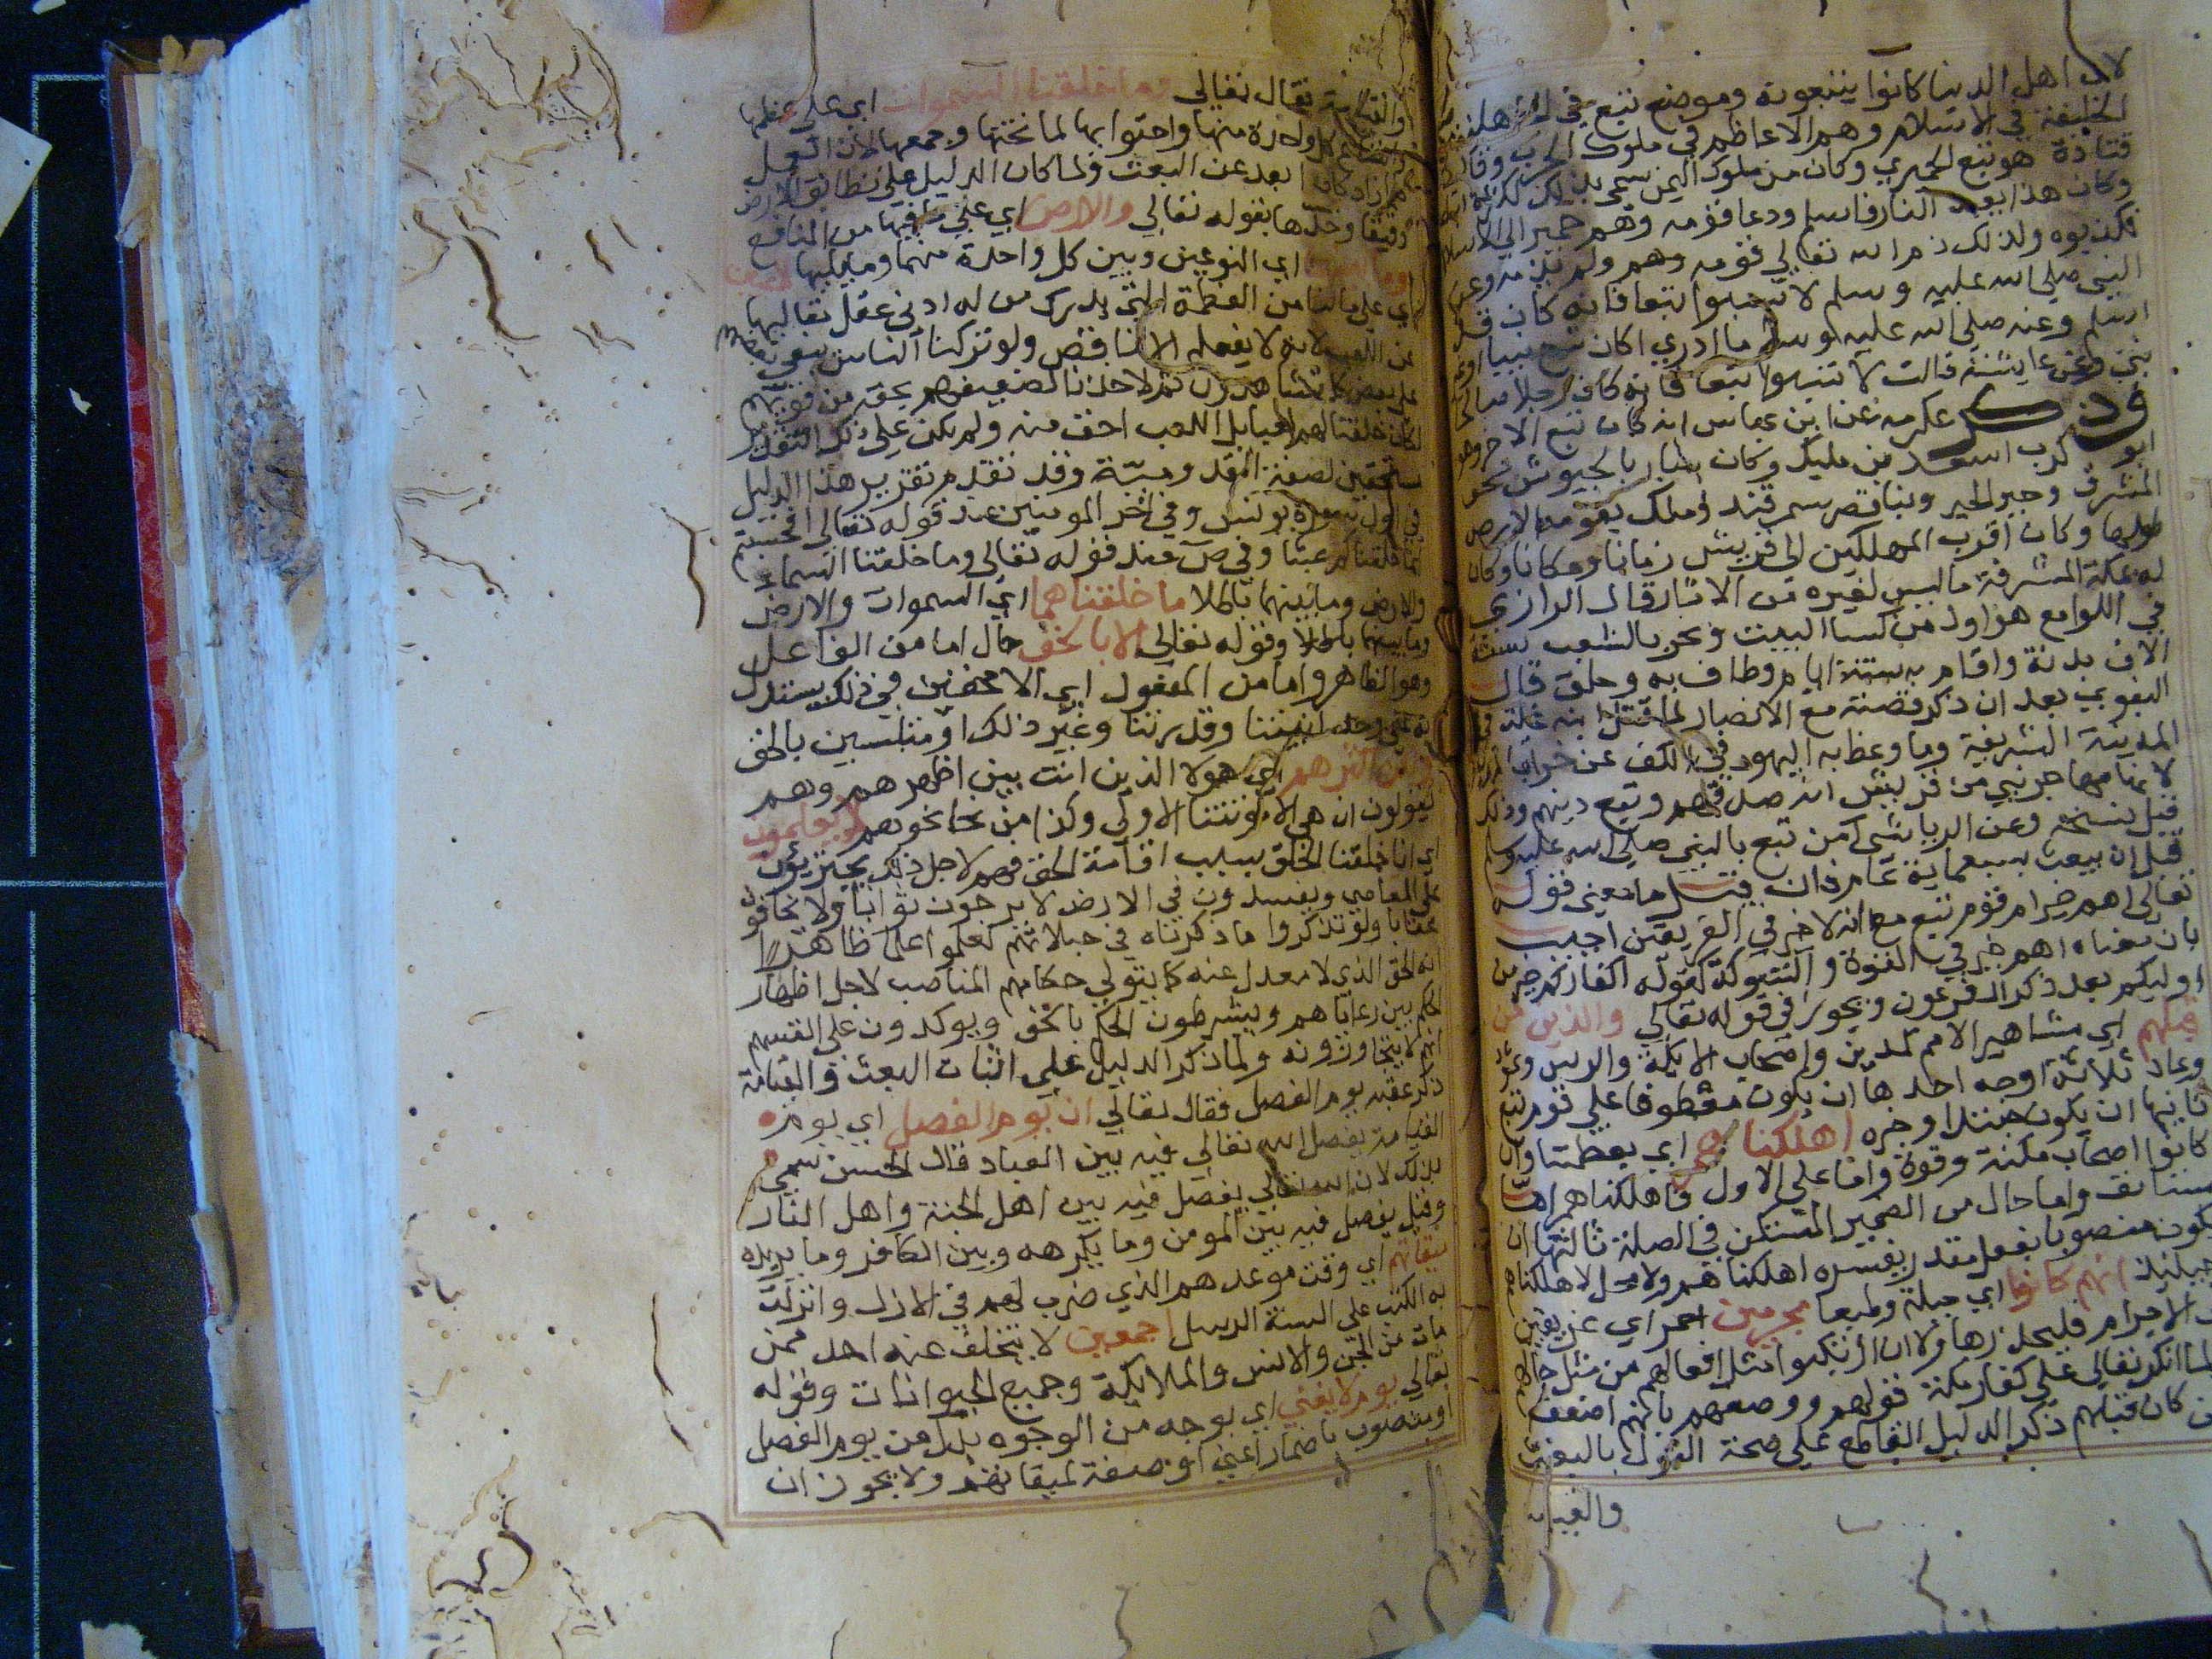 لان اهل الدنيا كانوا يتبعونه وموضع تبع في الجاهلية
الخليفة في الاسلام وهم الاعاظم في ملوك العرب وقال
قتادة هو تبع الحميري وكان من ملوك اليمن سمي بذلك لكثرة
وكان هذا يعبد النار فاسلم ودعا قومه وهم حمير الي الاسلام
فكذبوه ولذلك ذم الله تعالي قومه وهم ولم يذمه وعن
النبي صلي الله عليه وسلم لا تسبوا تبعا فانه كان قد
اسلم وعنه صلي الله عليه وسلم ما ادري اكان تبع نبيا او غير
نبي وعن عايشة قالت لا تسبوا تبعا فانه كان رجلا صالحا
وذكر عكرمه عن ابن عباس انه كان تبع الاخر وهو
ابو كرب اسعد بن مليك وكان سار بالجيوش نحو
المشرق وحير الحير وبنا قصر سمرقند وملك بقومه الارض
طولها وكان اقرب المهلكين الي قريش زمانا ومكانا وكان
له بمكة المشرفة ما ليس لغيره من الاثار قال الرازي
في اللوامع هو اول من كسا البيت ونحر بالشعب ستة
الاف بدنة واقام به ستة ايام وطاف به وحلق قال
البغوي بعد ان ذكر قصته مع الانصار لما قتل ابنه غيلة في
المدينة الشريفة وما وعظ به اليهود في الكف عن خراب
لانها مهاجر نبي من قريش انه صدقهم وتبع دينهم وذلك
قبل نسخه وعن الرياشي امن تبع بالنبي صلي الله عليه وسلم
قبل ان يبعث بسبعماية عام فان قيل ما معني قوله
تعالي اهم خير ام قوم تبع مع انه لا خير في الفريقين اجيب
بان معناه اهم خير في القوة والشوكة كقوله اكفاركم خير من
اوليكم بعد ذكر ال فرعون ويجوز في قوله تعالي والذين من
قبلهم اي مشاهير الامم كمدين واصحاب الايكة والرس وثمود
وعاد ثلاثة اوجه احدها ان يكون معطوفا علي قوم تبع
ثانيها ان يكون مبتدا وخبره اهلكناهم اي بعظمتنا وان
كانوا اصحاب مكنة وقوة واما علي الاول فاهلكناهم اما
مستانف واما حال من الضمير المستكن في الصلة ثالثها ان
يكون منصوبا بفعل مقدر يفسره اهلكناهم ولا محل لاهلكناهم
حينئذ انهم كانوا اي جبلة وطبعا مجرمين اي عريقين
في الاجرام فليحذر هاولا ان ارتكبوا مثل افعالهم من مثل حالهم
ولما انكر تعالي علي كفار مكة قولهم ووصفهم بانهم اضعف
من كان قبلهم ذكر الدليل القاطع علي صحة القول بالبعث
والقيامة
والقيامة فقال تعالي وما خلقنا السموات اي علي عظمها
واتساع كل واحدة منها واحتوايها لما تحتها وجمعها لان العمل
ابعد عن البعث ولما كان الدليل علي تطابق الارض
دقيقا وحدها بقوله تعالي والارض اي علي ما فيها من المنافع
وما بينهما اي النوعين وبين كل واحدة منهما وما يليها لاعبين
اي علي مالنا من العظمة التي يدرك من له ادني عقل تعاليها
عن اللعب لانه لا يفعله الا ناقص ولو تركنا الناس يبغي بعضهم
علي بعض كما تشاهدون ثم لا حذنا لضعيفهم بحقه من قويهم
لكان خلقنا لهم لعبا بل اللعب اخف منه ولم نكن علي ذلك التقدير
مستحقين لصفة القدوسية وقد تقدم تقرير هذا الدليل
في اول سورة يونس وفي اخر المومنين عند قوله تعالي افحسبتم
انما خلقناكم عبثا وفي ص عند قوله تعالي وما خلقنا السماء
والارض وما بينهما باطلا ما خلقناهما اي السموات والارض
وما بينهما باطلا وقوله تعالي الا بالحق حال اما من الفاعل
وهو الظاهر واما من المفعول اي الا محقين في ذلك يستدل
به علي وحدانيتنا وقدرتنا وغير ذلك او متلبسين بالحق
ولكن اكثرهم اي هولا الذين انت بين اظهرهم وهم
يقولون ان هي الا موتتنا الاولي وكذا من نحا نحوهم لا يعلمون
اي انا خلقنا الخلق بسبب اقامة الحق فهم لاجل ذلك يجتريون
علي المعاصي ويفسدون في الارض لا يرجون ثوابا ولا يخافون
عقابا ولو تذكروا ما ذكرناه في جبلاتهم لعلموا علما ظاهرا
انه الحق الذي لا معدل عنه كما يتولي حكامهم المناصب لاجل اظهار
الحكم بين رعاياهم ويشرطون الحكم بالحق ويوكدون علي انفسهم
انهم لا يتجاوزونه ولما ذكر الدليل علي اثبات البعث والقيامة
ذكر عقبه يوم الفصل فقال تعالي ان يوم الفصل اي يوم
القيامة يفصل الله تعالي فيه بين العباد قال الحسن سمي
بذلك لان الله تعالي يفصل فيه بين اهل الجنة واهل النار
وقيل يفصل فيه بين المومن وما يكرهه وبين الكافر وما يريده
ميقاتهم اي وقت موعدهم الذي ضرب لهم في الازل وانزلت
به الكتب علي السنة الرسل اجمعين لا يتخلف عنه احد ممن
مات من الجن والانس والملايكة وجميع الحيوانات وقوله
تعالي يوم لا يغني اي بوجه من الوجوه بدل من يوم الفصل
او منصوب باضمار اعني او صفة لميقاتهم ولا يجوز ان